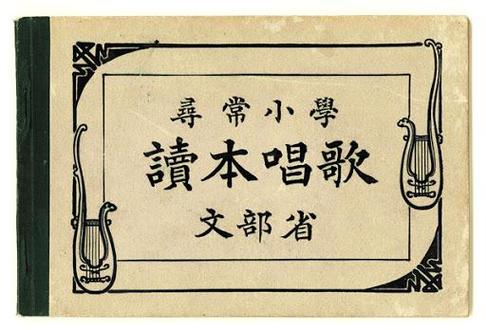 尋常小學
讀本唱歌
文部省